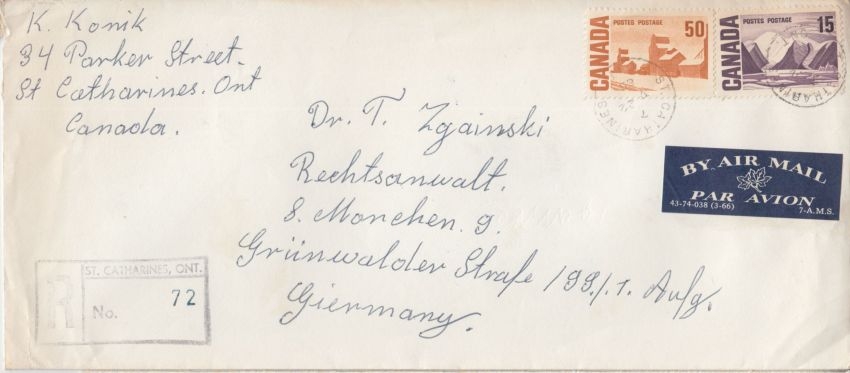 K. Konik
34 Parker Street.
St Catharines. Ont
Canada.
CANADA
POSTES POSTAGE
50
CANADA
POSTES POSTAGE
15
ST. CATHARINES
Dr. T. Zgainski
Rechtsanwalt.
8. Monchen. 9.
Grünwalder Straße 199/1. Aufg.
Giermany.
BY AIR MAIL
PAR AVION
43-74-038 (3-66)
7-A.M.S.
R
ST. CATHARINES, ONT.
No. 72